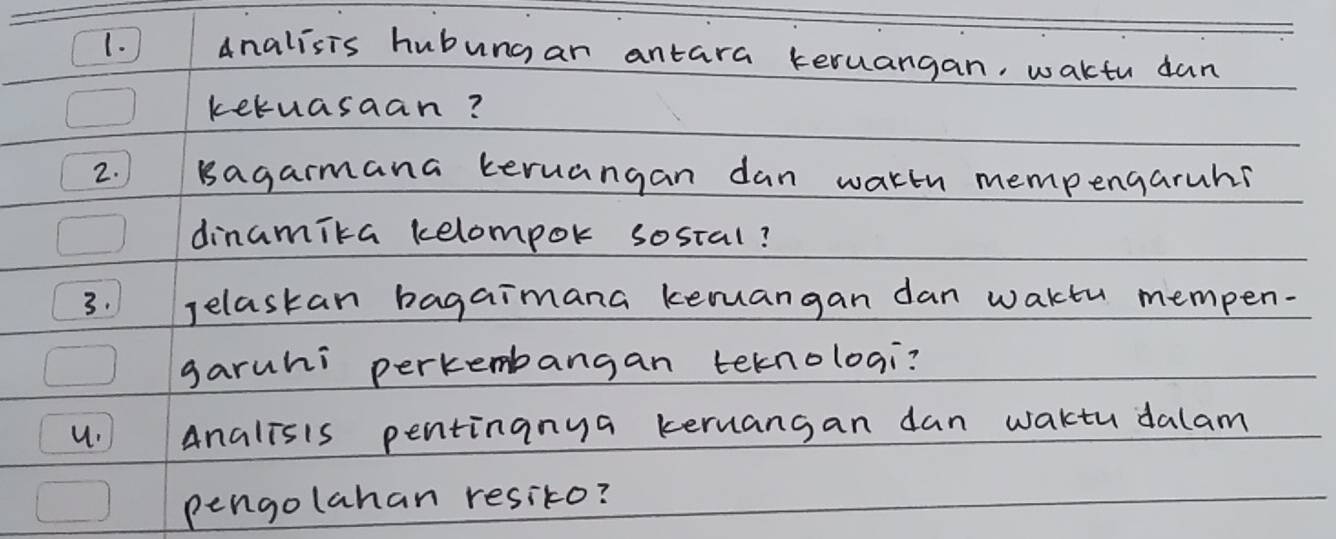 1. Analisis hubungan antara keruangan, waktu dan
kekuasaan?
2. Bagaimana keruangan dan waktu mempengaruhi
dinamika kelompok sosial?
3. Jelaskan bagaimana keruangan dan waktu mempen-
garuhi perkembangan teknologi?
4. Analisis pentingnya keruangan dan waktu dalam
pengolahan resiko?